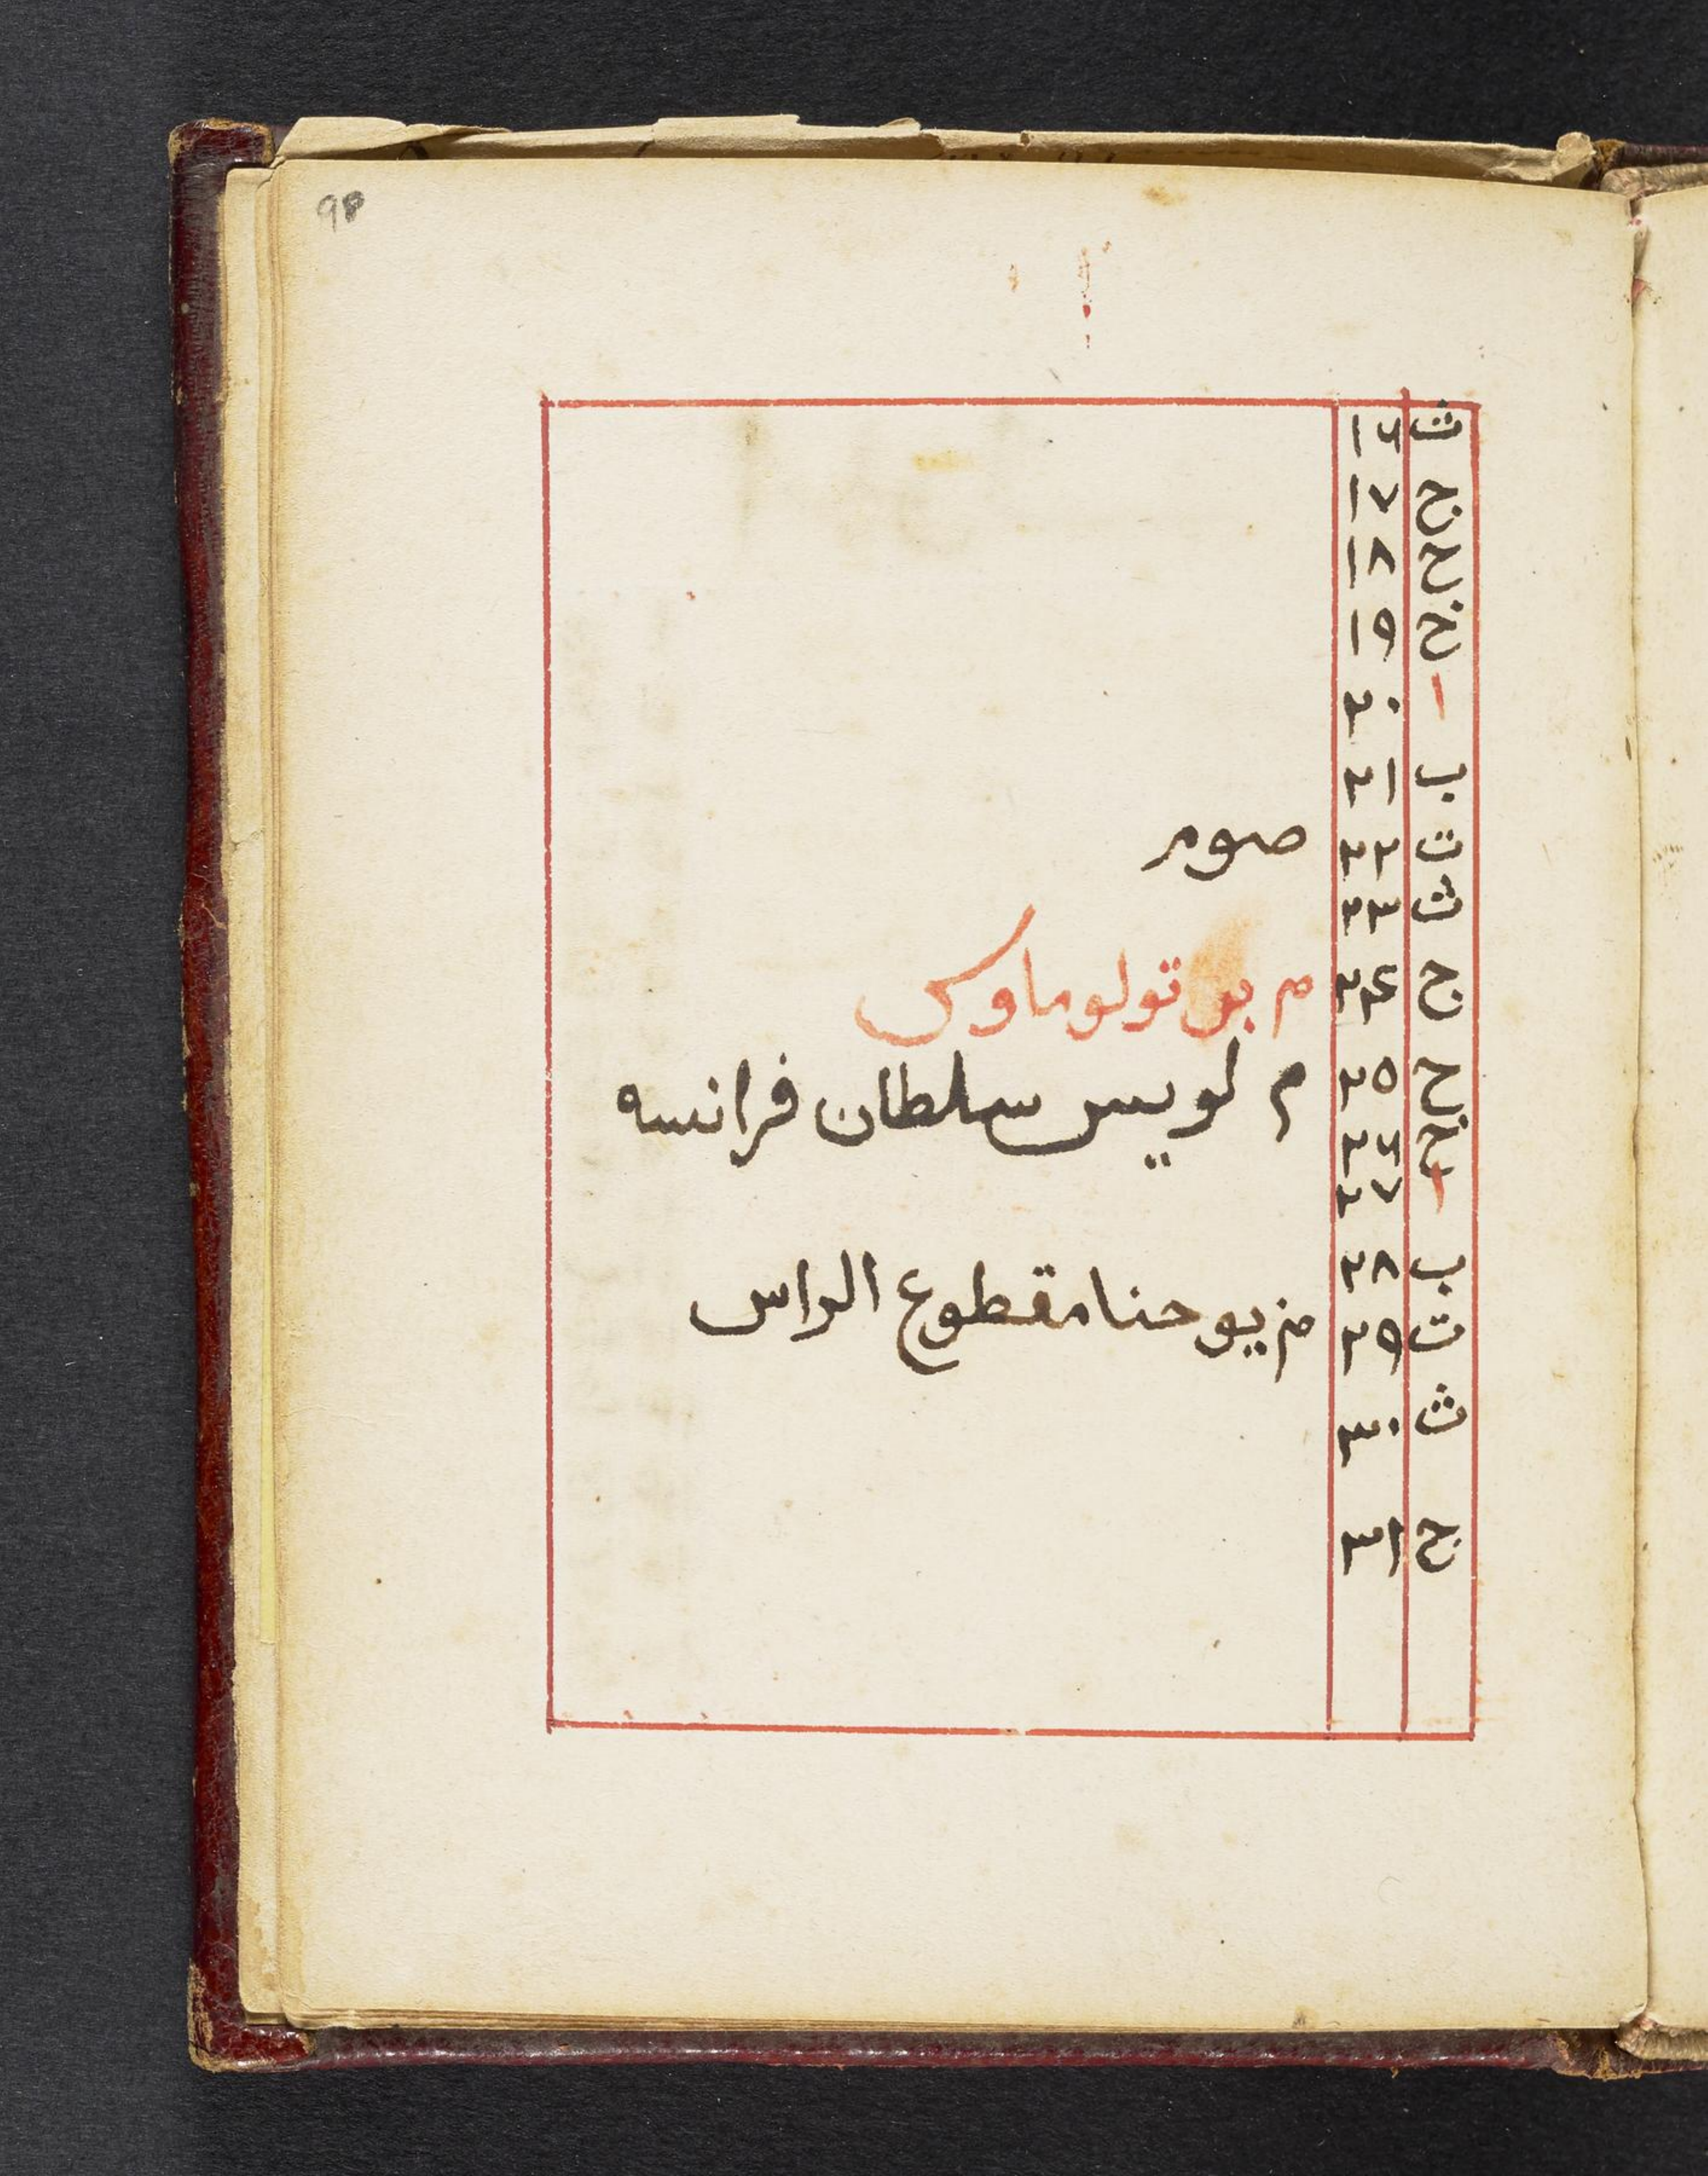 ث ١٦
ج ١٧
ح ١٨
خ ١٩
ا ٢٠
ب ٢١
ت ٢٢ صوم
ث ٢٣
ج ٢٤ م برتولوماوس
ح ٢٥ م لويس سلطان فرانسه
خ ٢٦
ا ٢٧
ب ٢٨
ت ٢٩ م يوحنا مقطوع الراس
ث ٣٠
ج ٣١